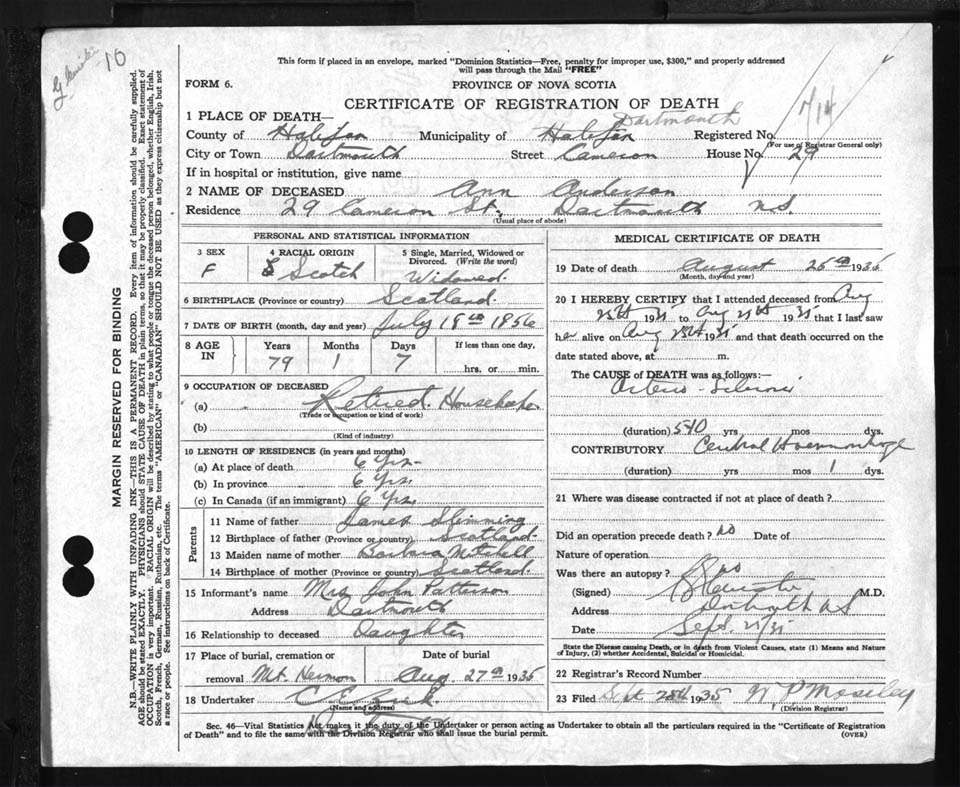 16
This form if placed in an envelope, marked "Dominion Statistics—Free, penalty for improper use, $300," and properly addressed
will pass through the Mail "FREE"
FORM 6.
PROVINCE OF NOVA SCOTIA
CERTIFICATE OF REGISTRATION OF DEATH
1 PLACE OF DEATH—
Dartmouth
County of Halifax Municipality of Halifax Registered No. 1714
(For use of Registrar General only)
City or Town Dartmouth Street Cameron House No. 29
If in hospital or institution, give name
2 NAME OF DECEASED Ann Anderson
Residence 29 Cameron St. Dartmouth N.S.
(Usual place of abode)
PERSONAL AND STATISTICAL INFORMATION
3 SEX F
4 RACIAL ORIGIN Scotch
5 Single, Married, Widowed or Divorced. (Write the word) Widowed.
6 BIRTHPLACE (Province or country) Scotland.
7 DATE OF BIRTH (month, day and year) July 18th 1856
8 AGE IN Years 79 Months 1 Days 7 If less than one day, hrs. or min.
9 OCCUPATION OF DECEASED
(a) Retired Housekeeper
(Trade or occupation or kind of work)
(b)
(Kind of industry)
10 LENGTH OF RESIDENCE (in years and months)
(a) At place of death 6 Yrs.
(b) In province 6 Yrs.
(c) In Canada (if an immigrant) 6 Yrs.
Parents
11 Name of father James Slimming
12 Birthplace of father (Province or country) Scotland.
13 Maiden name of mother Barbara Mitchell
14 Birthplace of mother (Province or country) Scotland.
15 Informant's name Mrs John Patterson
Address Dartmouth
16 Relationship to deceased Daughter
17 Place of burial, cremation or removal Mt. Hermon
Date of burial Aug. 27th 1935
18 Undertaker C E
(Name and address)
MEDICAL CERTIFICATE OF DEATH
19 Date of death August 25th 1935
(Month, day and year)
20 I HEREBY CERTIFY that I attended deceased from Aug
25th 1935 to Aug 25th 1935 that I last saw
her alive on Aug 25th 1935 and that death occurred on the
date stated above, at m.
The CAUSE of DEATH was as follows:—
Arterio-Sclerosis
(duration) 5-10 yrs mos dys.
CONTRIBUTORY Cerebral Haemorrhage
(duration) yrs mos 1 dys.
21 Where was disease contracted if not at place of death?
Did an operation precede death? no Date of
Nature of operation
Was there an autopsy? no
(Signed) M.D.
Address Dartmouth N S
Date Sept. 35
State the Disease causing Death, or in death from Violent Causes, state (1) Means and Nature
of Injury, (2) whether Accidental, Suicidal or Homicidal.
22 Registrar's Record Number
23 Filed Sept 1935 W P Moseley
(Division Registrar)
Sec. 46—Vital Statistics Act makes it the duty of the Undertaker or person acting as Undertaker to obtain all the particulars required in the "Certificate of Registration
of Death" and to file the same with the Division Registrar who shall issue the burial permit.
(OVER)
MARGIN RESERVED FOR BINDING
N.B.—WRITE PLAINLY WITH UNFADING INK—THIS IS A PERMANENT RECORD. Every item of information should be carefully supplied.
AGE should be stated EXACTLY. PHYSICIANS should STATE CAUSE OF DEATH in plain terms, so that it may be properly classified. Exact statement of
OCCUPATION is very important. RACIAL ORIGIN will be described by stating to what people or tongue the deceased person belonged, whether English, Irish,
Scotch, French, German, Russian, Ruthenian, etc. The terms "AMERICAN" or "CANADIAN" SHOULD NOT BE USED as they express citizenship but not
a race or people. See instructions on back of Certificate.